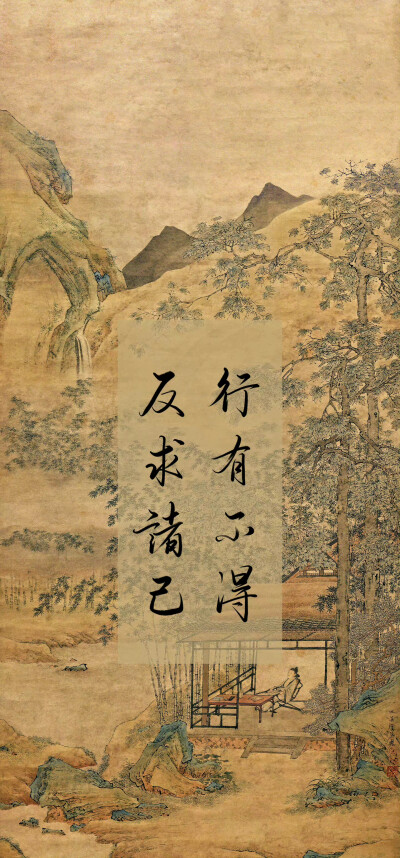 行有不得
反求諸己